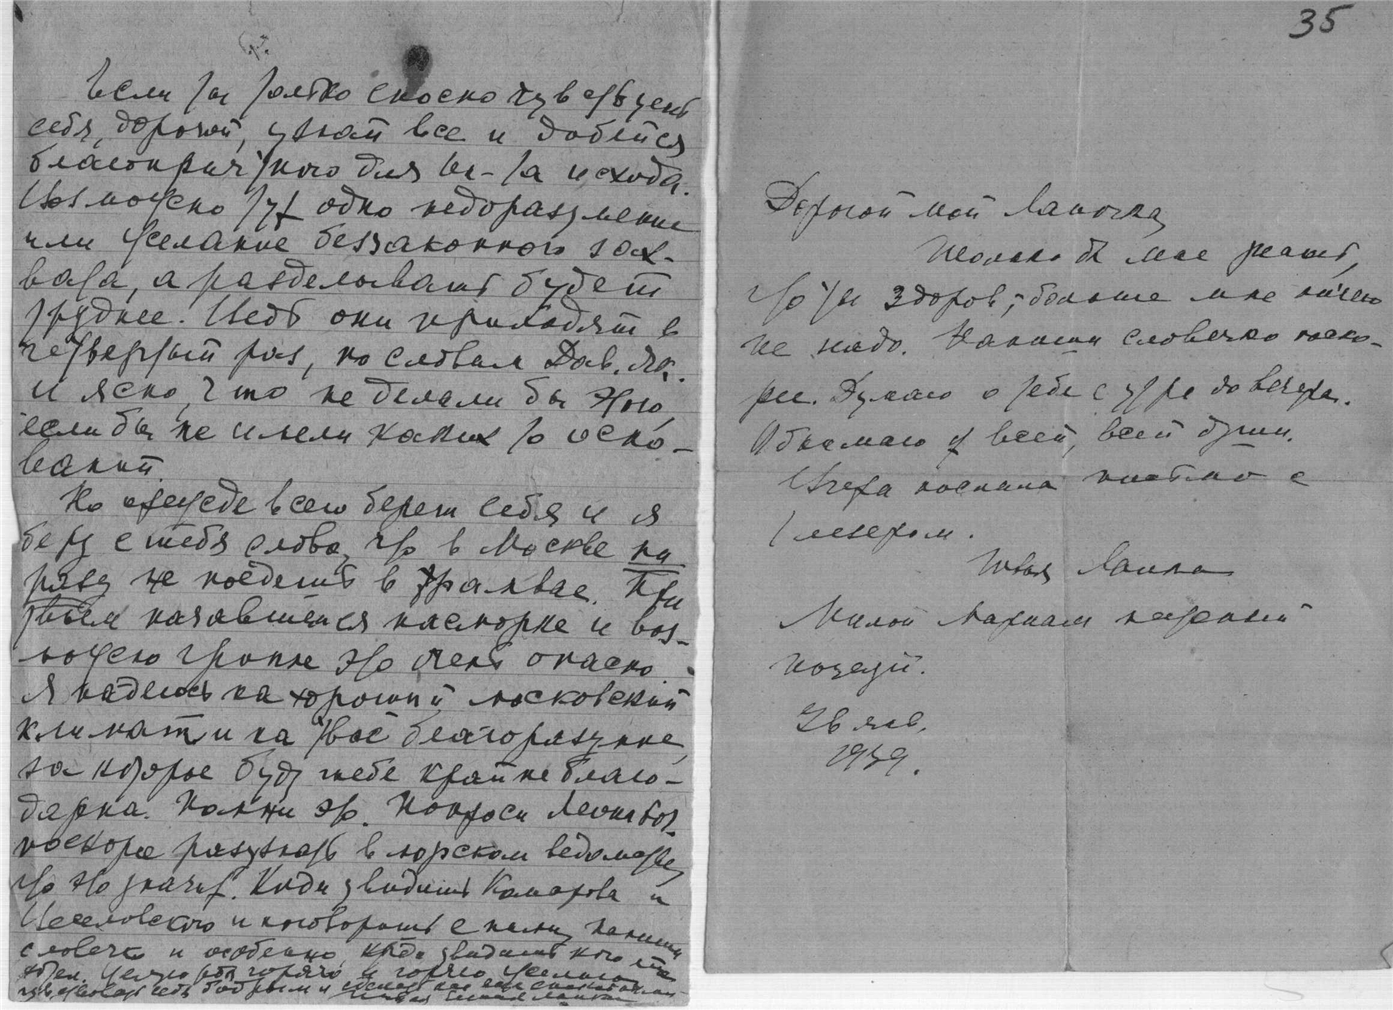 Если ты только сносно чувствуешь
себя, дорогой, узнай все и добейся
благоприятного для ин-та исхода.
Возможно тут одно недоразумение
или желание беззаконного зах-
вата, а разделывать будет
труднее. Ведь они приходят в
четвертый раз, по словам Дав. Як.
и ясно, что не делали бы этого,
если бы не имели каких то осно-
ваний
Но прежде всего береги себя и я
беру с тебя слово, что в Москве ни
разу не поедешь в трамвае. При
твоем начавшемся насморке и воз-
можно гриппе это очень опасно.
Я надеюсь на хороший московский
климат и на твое благоразумие,
за которое буду тебе крайне благо-
дарна. Помни это. Попроси
поскорее разузнать в морском ведомстве,
что это значит. Когда увидишь Комарова и
и поговоришь с ними, напиши
словечко и особенно, когда увидишь кого
Целую тебя горячо и горячо, желаю
чувствовать себя бодрым и
35
Дорогой мой Лапочка,
Только бы мне знать,
что ты здоров, - больше мне ничего
не надо. Напиши словечко поско-
рее. Думаю о тебе с утра до вечера.
Обнимаю от всей, всей души.
Вчера послала письмо с
Твоя
Милой нежный
поцелуй.
26 янв.
1939.